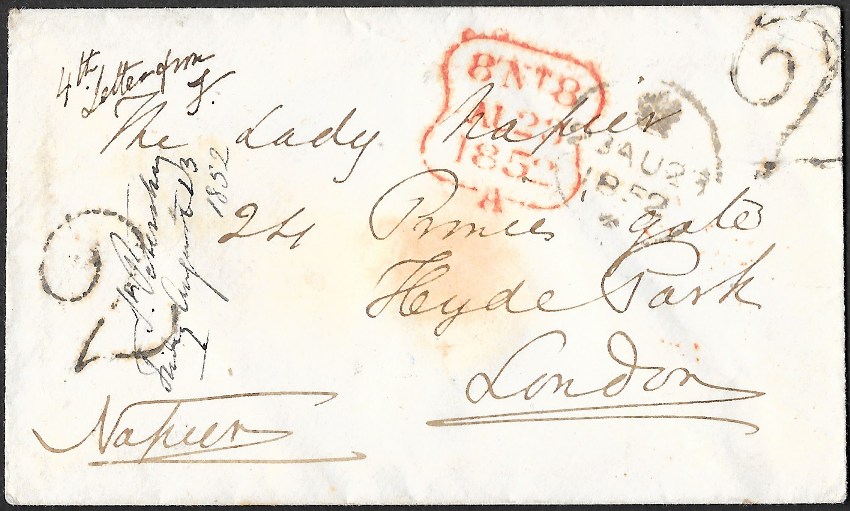 4th
Letter from
The Lady Napier
24 Princes gate
Hyde Park
London
Napier
St Petersburg
Friday August 13
1852
8 NT 8
AU 23
1852
A
AU 23
1852
2
2